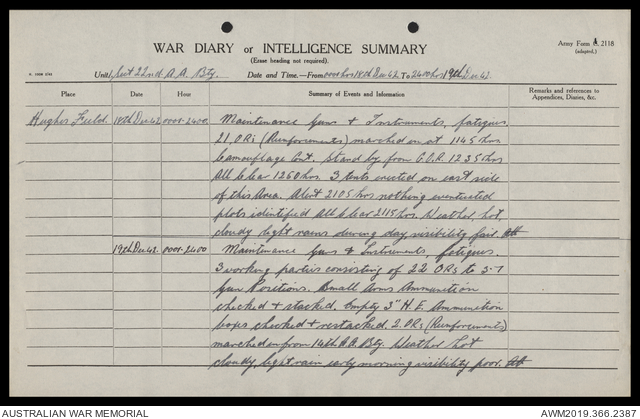 Army Form A 2118
(adapted.)
WAR DIARY or INTELLIGENCE SUMMARY
(Erase heading not required).
Unit 22nd A.A. Bty. Date and Time.—From 0001hrs 18th Dec 42. To 2400hrs 19th Dec 42.
Place Date Hour Summary of Events and Information Remarks and references to Appendices, Diaries, &c.
Hughes Field. 18th Dec 42 0001-2400. Maintenance Guns & Instruments, fatigues.
21 ORs (Reinforcements) marched in at 1145 hrs
Camouflage Cont. Stand by from G.O.R. 1235hrs
All Clear 1250 hrs. 3 tents erected on east side
of this Area. Alert 2105 hrs nothing eventuated
plots identified All Clear 2115 hrs. Weather, hot,
cloudy light rains during day visibility fair.
19th Dec 42. 0001-2400 Maintenance Guns & Instruments, fatigues.
3 working parties consisting of 22 ORs to 3.7
Gun Positions. Small Arms Ammunition
checked & stacked. Empty 3" H.E. Ammunition
boxes checked & restacked. 2 ORs (Reinforcements)
marched in from 14th A.A. Bty. Weather hot
cloudy, light rain early morning visibility poor.
AUSTRALIAN WAR MEMORIAL
AWM2019.366.2387